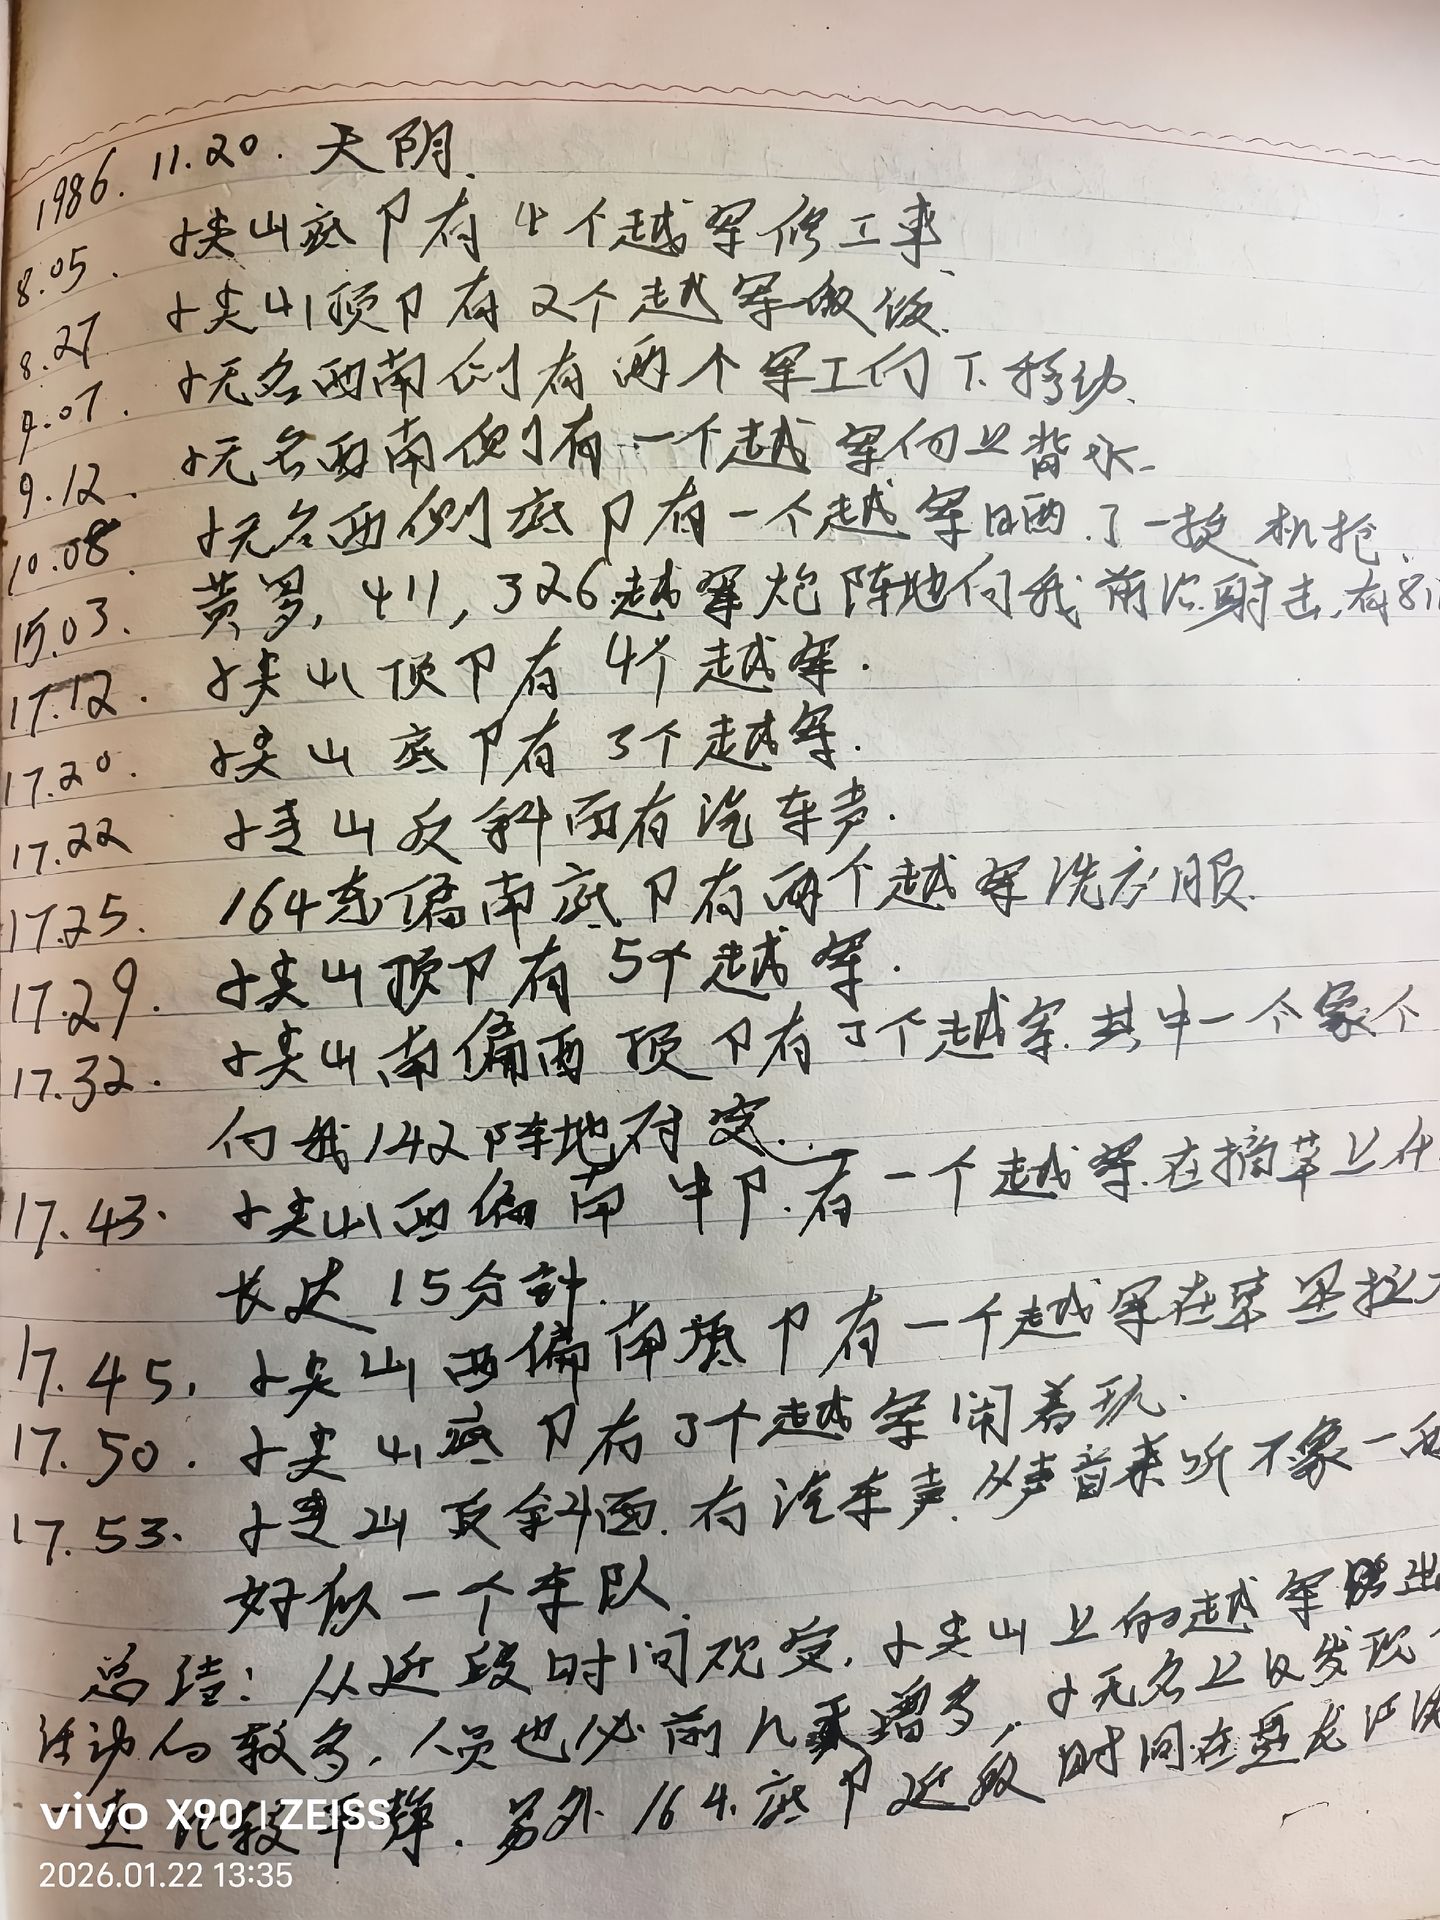 1986. 11.20. 天阴.
8.05. 小尖山底卩有4个越军修工事
8.27 小尖山顶卩有2个越军做饭.
9.07. 小无名西南侧有两个军工向下移动.
9.12. 小无名西南侧有一个越军向上背水.
10.08. 小无名西侧底卩有一个越军晒了一挺机抢.
15.03. 黄罗, 411, 326越军炮阵地向我前沿射击,有
17.12. 小尖山顶卩有4个越军.
17.20. 小尖山底卩有3个越军.
17.22 小尖山反斜面有汽车声.
17.25. 164东偏南底卩有两个越军洗衣服.
17.29. 小尖山顶卩有5个越军.
17.32. 小尖山南偏西顶卩有3个越军.其中一个象个
向我142阵地观察.
17.43. 小尖山西偏南中卩.有一个越军.在摘草上什
长达15分計.
17.45. 小尖山西偏南顶卩有一个越军在草里拉
17.50. 小尖山底卩有3个越军闹着玩.
17.53. 小尖山反斜面.有汽车声.从声音来听不象一两
好似一个车队.
总结: 从近段时间观察.小尖山上的越军 出
活动的较多.人员也必前几天增多,小无名上没发现
一直比较平静.另外164.底卩近段时间在盘龙江洗
vivo X90 | ZEISS
2026.01.22 13:35